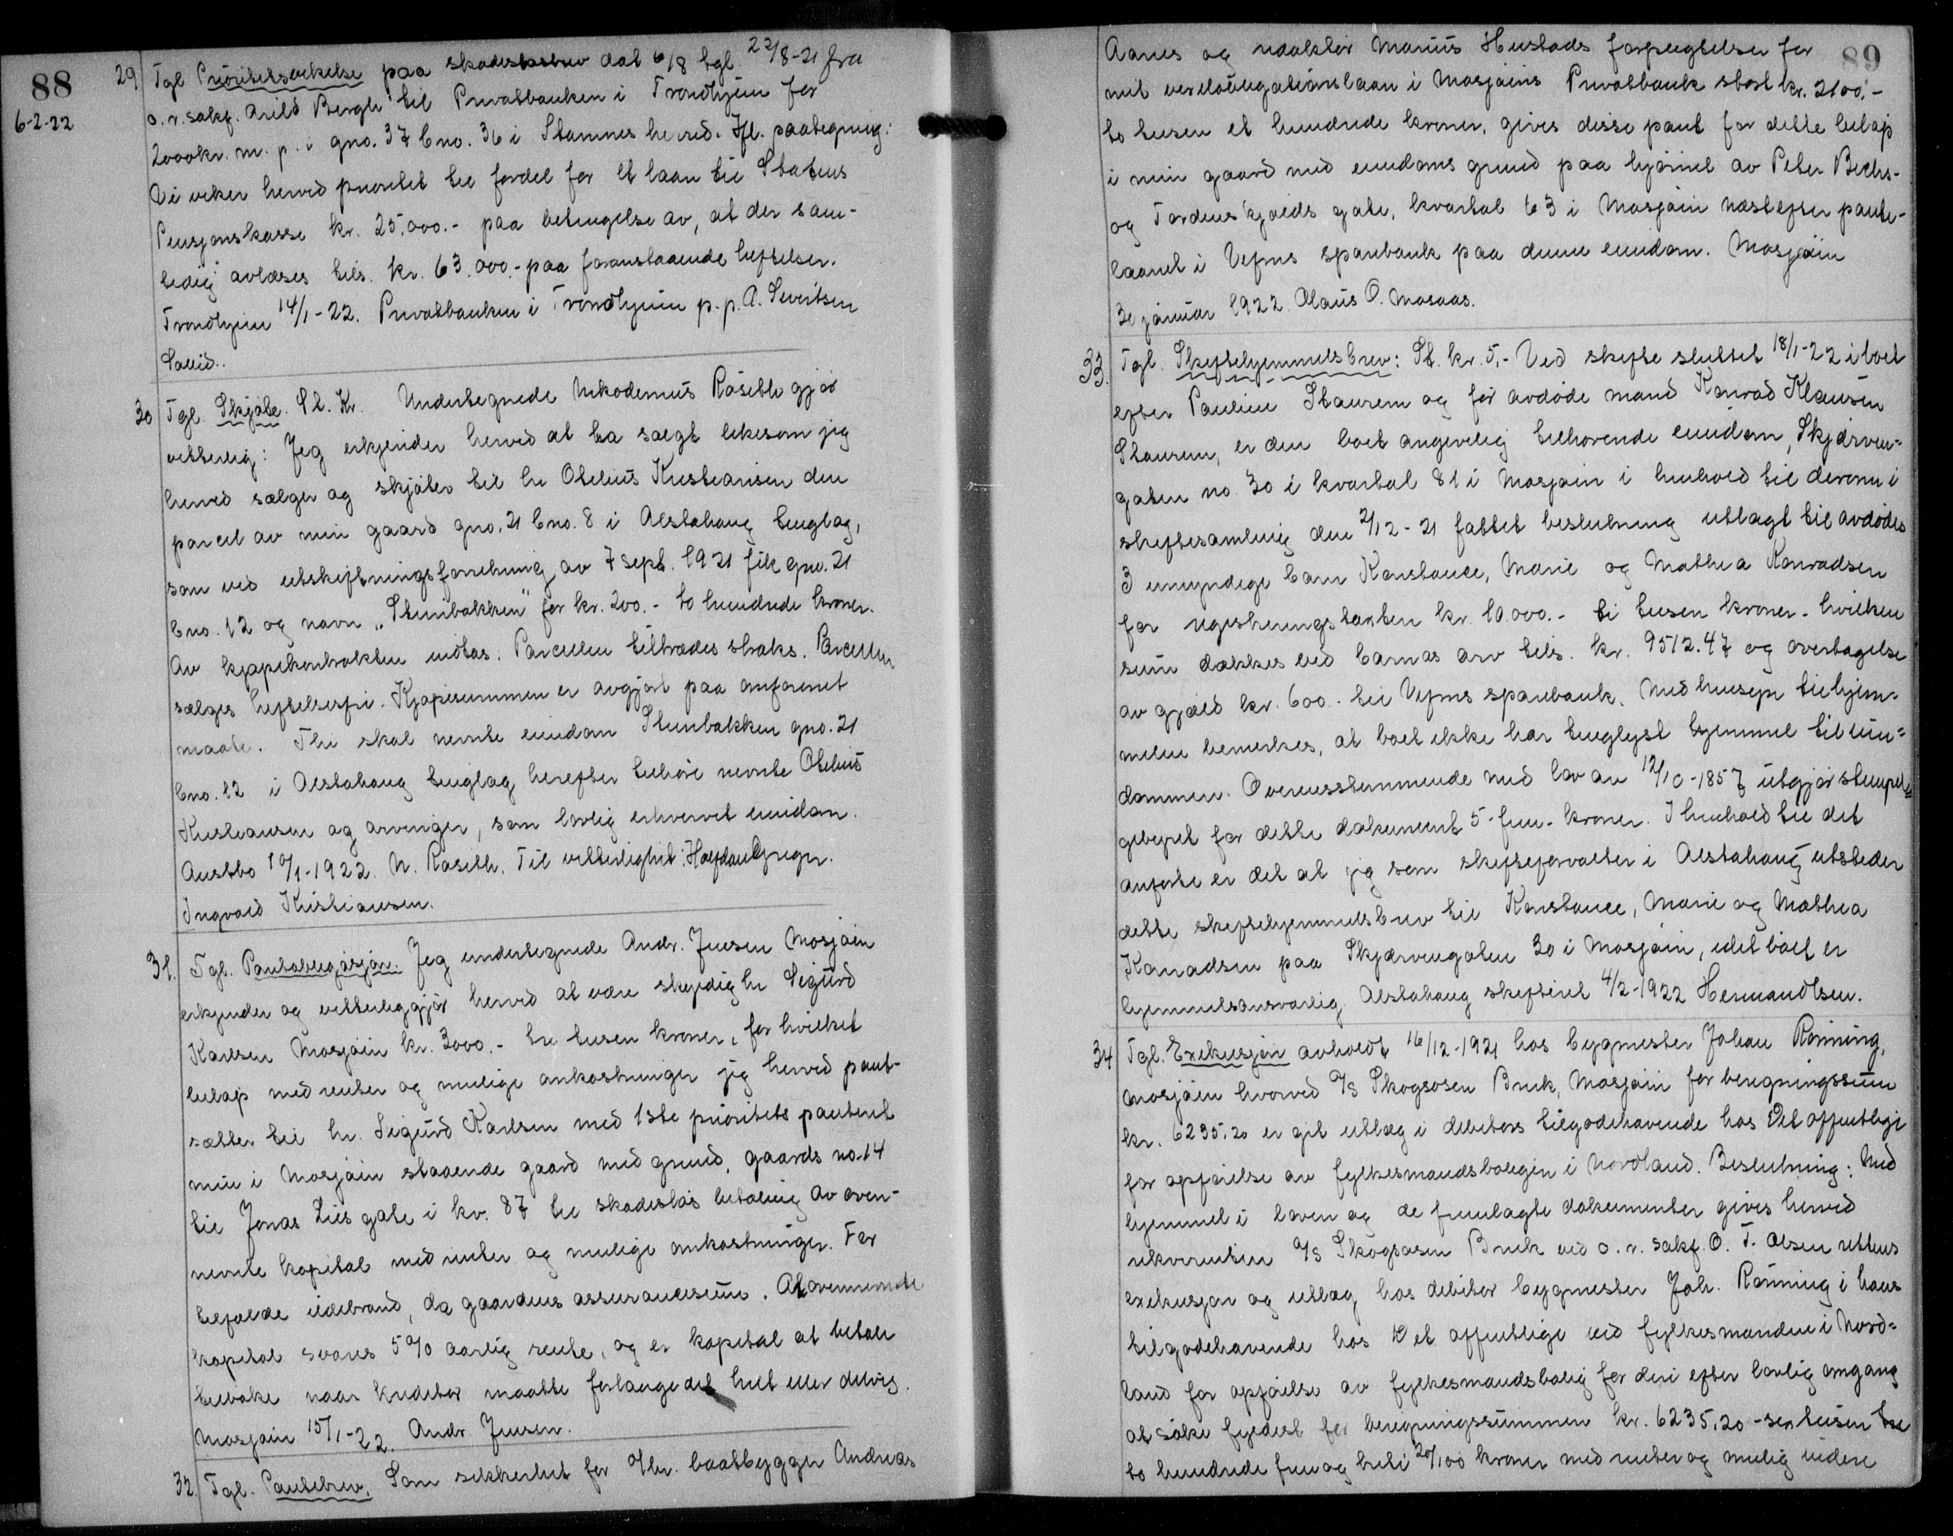 88
6-2-22
29 Tgl Prioritetsvikelse paa skadesbrev dat 6/8 tgl. 22/8-21 fra
o.r.sakf. Arild Bergh til Privatbanken i Trondhjem for
2000kr. m. p. i gno. 37 bno. 36 i Stamnes herred. Ifl. paategning:
Vi viker herved prioritet til fordel for et laan til Statens
Pensjonskasse kr. 25,000.- paa betingelse av, at der sam-
tidig avlæses tils. kr. 63.000.- paa foranstaaende heftelser.
Trondhjem 14/1-22. Privatbanken i Trondhjem p.p. A. Sivertsen
30 Tgl Skjøte. St. Kr. Undertegnede Nikodemus Røseth gjør
vitterlig: Jeg erkjender herved at ha sælgt likesom jeg
herved sælger og skjøter til hr Otelius Kristiansen den
parcel av min gaard gno. 21 bno. 8 i Alstahaug tinglag,
som ved utskiftningsforretning av 7 sept. 1921 fik gno. 21
bno. 12 og navn "Stenbakken" for kr. 200.- to hundrede kroner.
Av kjøpekontrakten indtas: Parcellen tiltrædes straks. Parcellen
sælges heftelsesfri. Kjøpesummen er avgjort paa omforenet
maate. Thi skal nevnte eiendom Stenbakken gno. 21
bno. 12 i Alstahaug tinglag herefter tilhøre nevnte Otelius
Kristiansen og arvinger, som lovlig erhvervet eiendom.
Austbo 10/1-1922. N. Røseth. Til vitterlighet: Halfdan Greger.
Ingvald Kristiansen.
31. Tgl. Pantobligasjon. Jeg undertegnede Andr. Jensen Mosjøen
erkjender og vitterliggjør herved at være skyldig hr Sigurd
Karlsen Mosjøen kr. 3000.- tre tusen kroner, for hvilket
beløp med renter og mulige omkostninger jeg herved pant-
sætter til hr. Sigurd Karlsen med 1ste prioritets panteret
min i Mosjøen staaende gaard med grund, gaards no. 14
til Jonas Lies gate i kv. 87 til skadesløs betaling av oven-
nevnte kapital med renter og mulige omkostninger. For
tilfælde ildebrand, da gaardens assurancesum. Av ovennevnte
kapital svares 5% aarlig rente, og er kapital at betale
tilbake naar kreditor maatte forlange det helt eller delvis.
Mosjøen 15/1-22. Andr Jensen.
32. Tgl. Pantebrev. Som sikkerhet for d'hr. baatbygger Andreas
89
Aanes og redaktør Marius Hustads forpligtelser for
mit vekselobligationslaan i Mosjøens Privatbank stort kr. 2100.-
to tusen et hundrede kroner, gives disse pant for dette beløp
i min gaard med eiendoms grund paa hjørnet av Peter Bechs-
og Tordenskjolds gate, kvartal 63 i Mosjøen næstefter pante-
laanet i Vefsns sparebank paa denne eiendom. Mosjøen
30 januar 1922. Olaus O. Mosaas.
33. Tgl. Skiftehjemmelsbrev: St. kr. 5.- Ved skifte sluttet 18/1-22 i boet
efter Pauline Staurem og før avdøde mand Konrad Klausen
Staurem, er den boet angivelig tilhørende eiendom, Skjærven=
gaten no. 30 i kvartal 81 i Mosjøen i henhold til derom i
skiftesamling den 2/12-21 fattet beslutning utlagt til avdødes
3 umyndige barn Konstance, Marie og Mathea Konradsen
for registreringstaksten kr. 10.000.- ti tusen kroner - hvilken
sum dækkes ved barnas arv tils. kr. 9512.47 og overtagelse
av gjæld kr. 600.- til Vefsns sparebank. Med hensyn til hjem-
melen bemerkes, at boet ikke har tinglyst hjemmel til eien=
dommen. Overensstemmende med lov av 12/10-1857 utgjør stempel=
gebyret for dette dokument 5 - fem - kroner. I henhold til det
anførte er det at jeg som skifteforvalter i Alstahaug utsteder
dette skiftehjemmelsbrev til Konstance, Marie og Mathea
Konradsen paa Skjærvengaten 30 i Mosjøen, idet boet er
hjemmelsansvarlig. Alstahaug skifteret 4/2-1922 Herman Olsen.
34 Tgl. Exekusjon avholdt 16/12-1921 hos bygmester Johan Rønning,
Mosjøen hvorved A/S Skogsosen Bruk, Mosjøen for beregningssum
kr. 6235.20 er git utlæg i debitors tilgodehavende hos Det offentlige
for opførelse av fylkesmandsboligen i Nordland. Beslutning: Med
hjemmel i loven og de fremlagte dokumenter gives herved
rekvirenten A/S Skogsosen Bruk ved o.r. sakf. O. T. Olsen rettens
exekusjon og utlæg hos debitor bygmester Joh. Rønning i hans
tilgodehavende hos Det offentlige ved fylkesmanden i Nord=
land for opførelse av fylkesmandsbolig for deri efter lovlig omgang
at søke fyldest for beregningssummen kr. 6235.20 - seks tusen
to hundrede fem og treti 20/100 kroner med renter og mulig videre